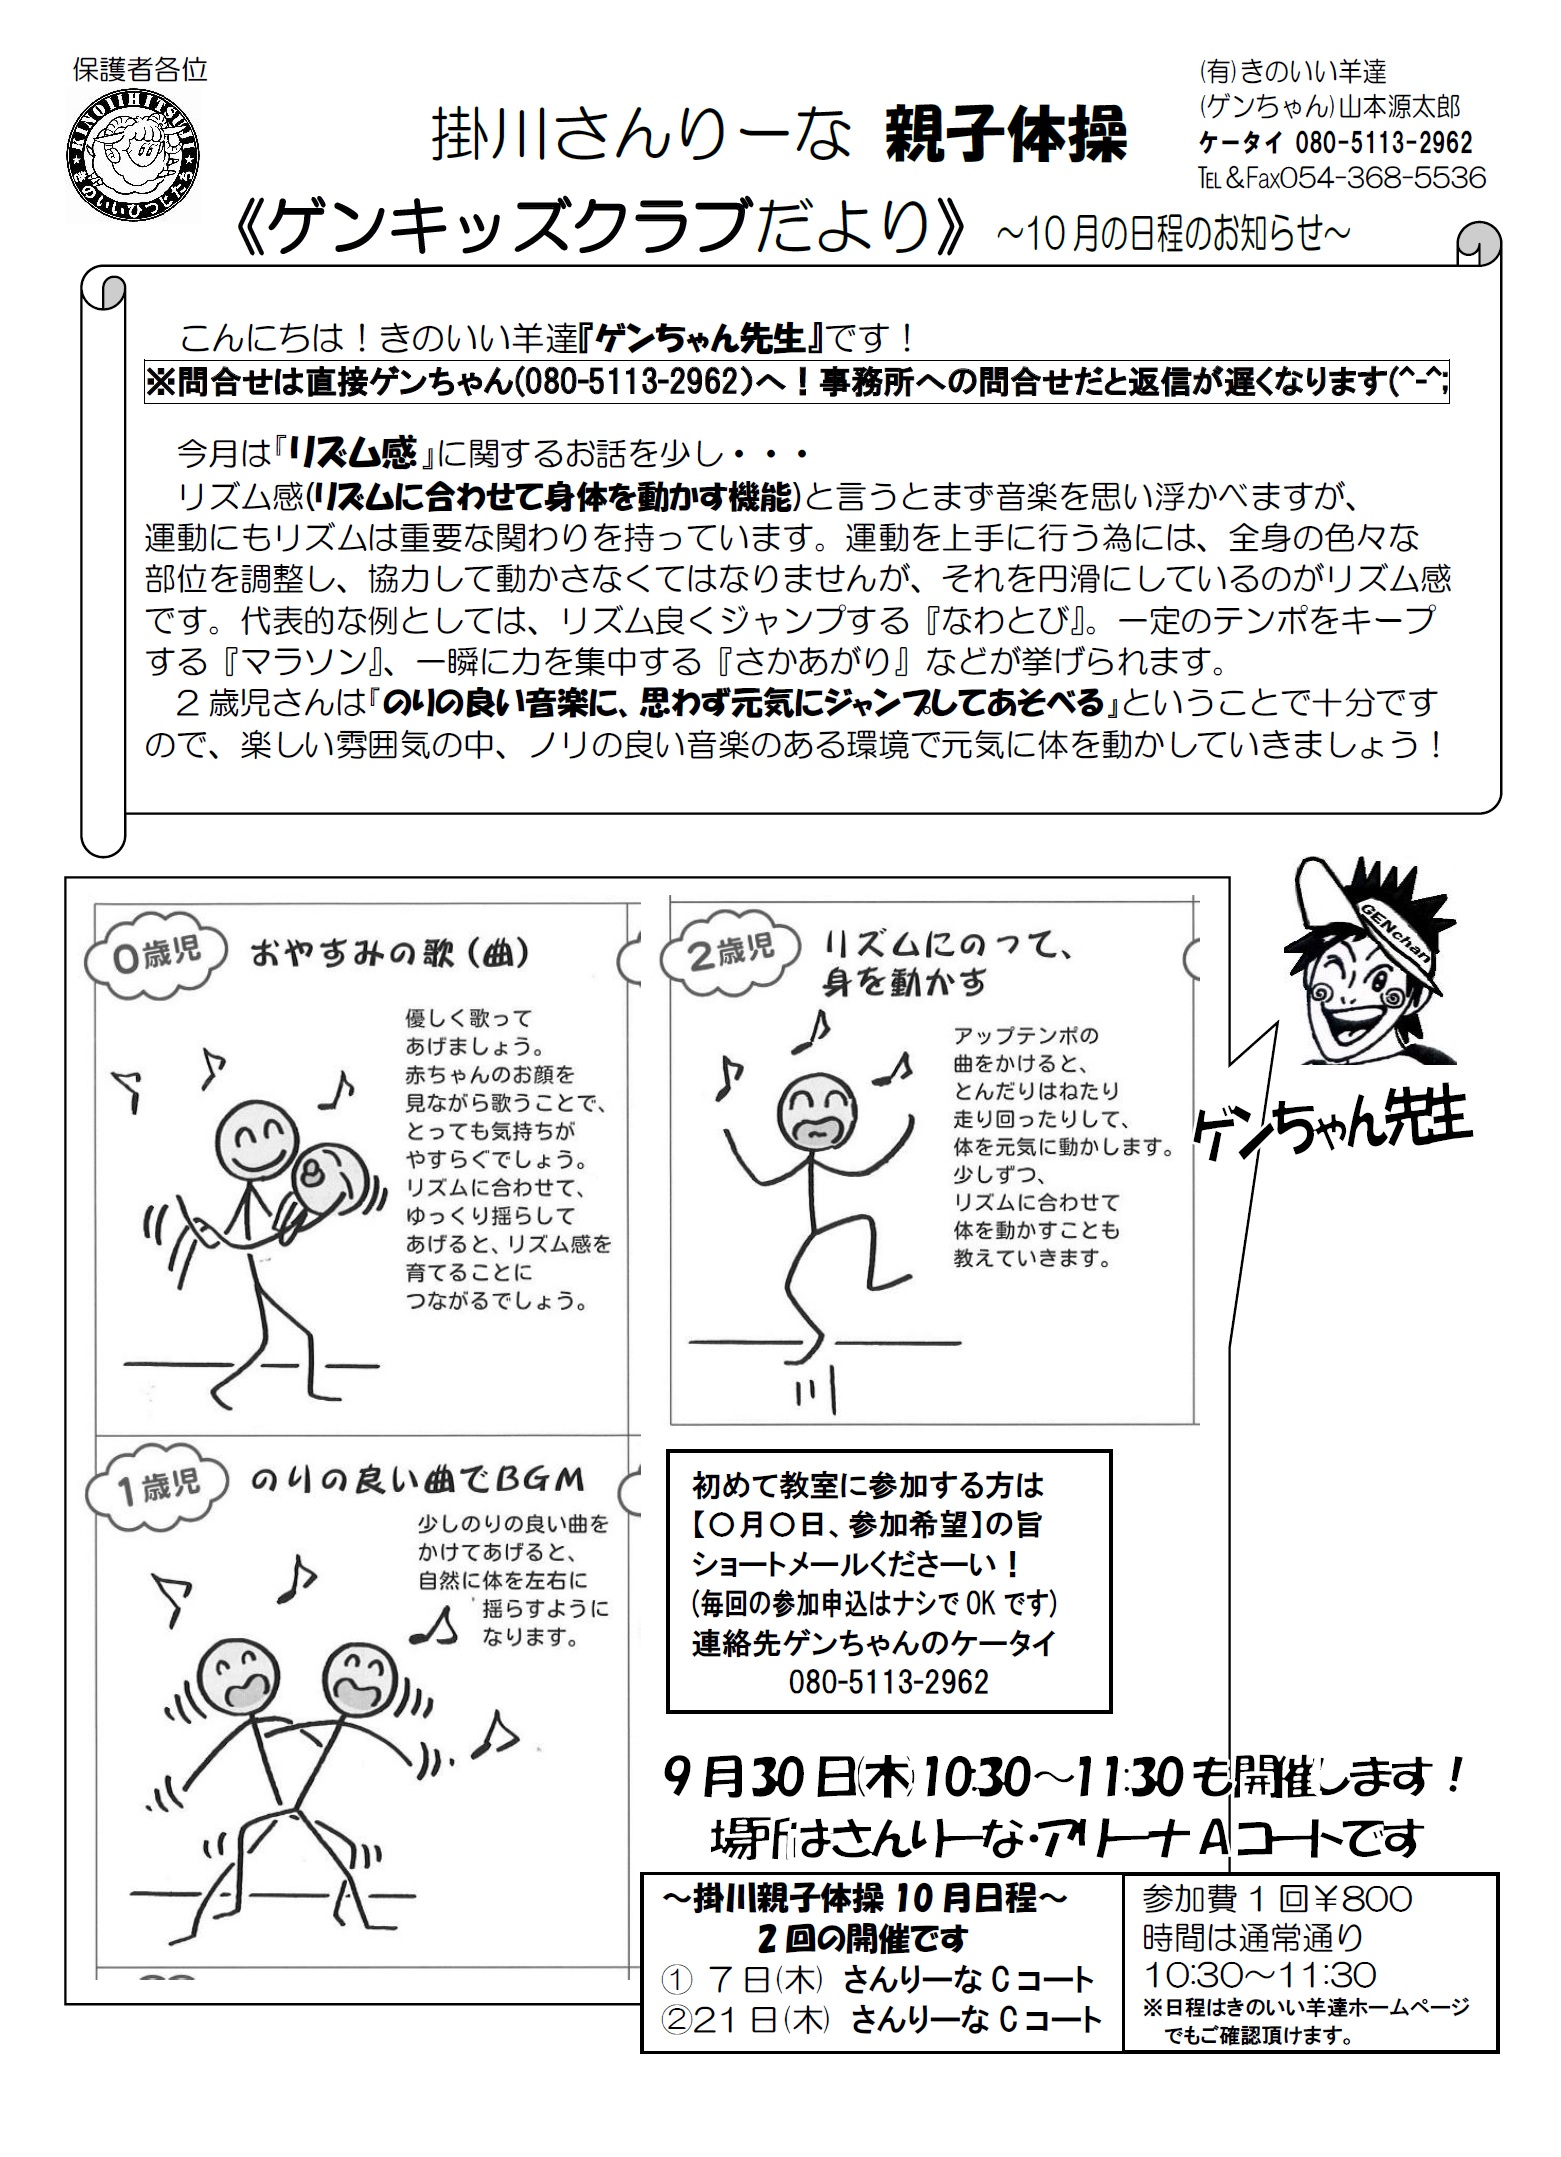 保護者各位
(有)きのいい羊達
(ゲンちゃん)山本源太郎
ケータイ 080-5113-2962
℡&Fax054-368-5536
KINOIIHITSUJI
きのいいひつじたち
掛川さんりーな 親子体操
《ゲンキッズクラブだより》 ～10月の日程のお知らせ～
こんにちは！きのいい羊達『ゲンちゃん先生』です！
※問合せは直接ゲンちゃん(080-5113-2962)へ！事務所への問合せだと返信が遅くなります(^-^;
今月は『リズム感』に関するお話を少し・・・
リズム感(リズムに合わせて身体を動かす機能)と言うとまず音楽を思い浮かべますが、
運動にもリズムは重要な関わりを持っています。運動を上手に行う為には、全身の色々な
部位を調整し、協力して動かさなくてはなりませんが、それを円滑にしているのがリズム感
です。代表的な例としては、リズム良くジャンプする『なわとび』。一定のテンポをキープ
する『マラソン』、一瞬に力を集中する『さかあがり』などが挙げられます。
2歳児さんは『のりの良い音楽に、思わず元気にジャンプしてあそべる』ということで十分です
ので、楽しい雰囲気の中、ノリの良い音楽のある環境で元気に体を動かしていきましょう！
0歳児 おやすみの歌(曲)
優しく歌って
あげましょう。
赤ちゃんのお顔を
見ながら歌うことで、
とっても気持ちが
やすらぐでしょう。
リズムに合わせて、
ゆっくり揺らして
あげると、リズム感を
育てることに
つながるでしょう。
2歳児 リズムにのって、
身を動かす
アップテンポの
曲をかけると、
とんだりはねたり
走り回ったりして、
体を元気に動かします。
少しずつ、
リズムに合わせて
体を動かすことも
教えていきます。
GENchan
ゲンちゃん先生
1歳児 のりの良い曲でBGM
少しのりの良い曲を
かけてあげると、
自然に体を左右に
揺らすように
なります。
初めて教室に参加する方は
【〇月〇日、参加希望】の旨
ショートメールくださーい！
(毎回の参加申込はナシでOKです)
連絡先ゲンちゃんのケータイ
080-5113-2962
9月30日(木)10:30～11:30も開催します！
場所はさんりーな・アリーナAコートです
～掛川親子体操10月日程～
2回の開催です
① 7日(木) さんりーなCコート
②21日(木) さんりーなCコート
参加費1回￥800
時間は通常通り
10:30～11:30
※日程はきのいい羊達ホームページ
でもご確認頂けます。